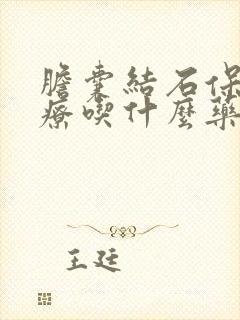 膽囊結石保
療喫什麼藥
王廷